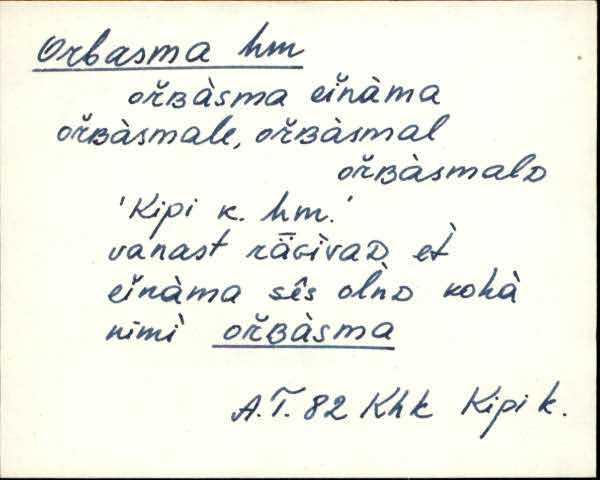 Orbasma hm
oř̌ʙàsma eı̆nàma
ořʙàsmale, ořʙàsmal
ořʙàsmalᴅ
'Kipi k. hm.'
vanast rǟɢìvaᴅ, et̀
eı̆nàma sês olǹᴅ kohà
nimì ořʙàsma
A.T. 82 Khk Kipi k.